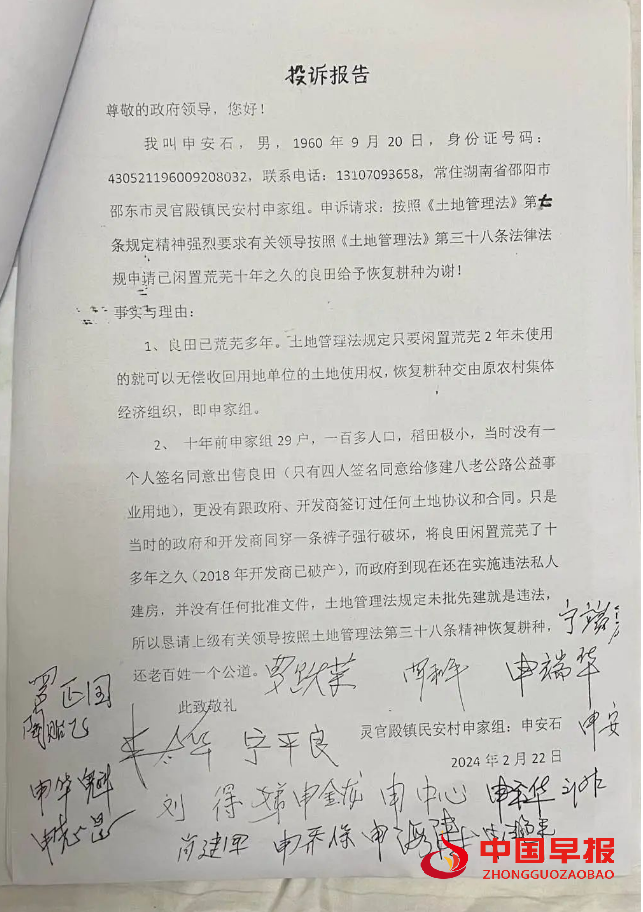 投诉报告
尊敬的政府领导，您好！
我叫申安石，男，1960 年 9 月 20 日，身份证号码：
430521196009208032，联系电话：13107093658，常住湖南省邵阳市
邵东市灵官殿镇民安村申家组。申诉请求：按照《土地管理法》第七
条规定精神强烈要求有关领导按照《土地管理法》第三十八条法律法
规申请已闲置荒芜十年之久的良田给予恢复耕种为谢！
事实与理由：
1、良田已荒芜多年。土地管理法规定只要闲置荒芜 2 年未使用
的就可以无偿收回用地单位的土地使用权，恢复耕种交由原农村集体
经济组织，即申家组。
2、 十年前申家组 29 户，一百多人口，稻田极小，当时没有一
个人签名同意出售良田（只有四人签名同意给修建八老公路公益事
业用地），更没有跟政府、开发商签订过任何土地协议和合同。只是
当时的政府和开发商同穿一条裤子强行破坏，将良田闲置荒芜了十
多年之久（2018 年开发商已破产），而政府到现在还在实施违法私人
建房，并没有任何批准文件，土地管理法规定未批先建就是违法，
所以恳请上级有关领导按照土地管理法第三十八条精神恢复耕种，
还老百姓一个公道。
申瑞华
此致敬礼
罗正国
宁平良
灵官殿镇民安村申家组：申安石
申安
2024 年 2 月 22 日
申华
刘得
申金龙
申中心
肖建军
申乔保
中国早报
ZHONGGUOZAOBAO